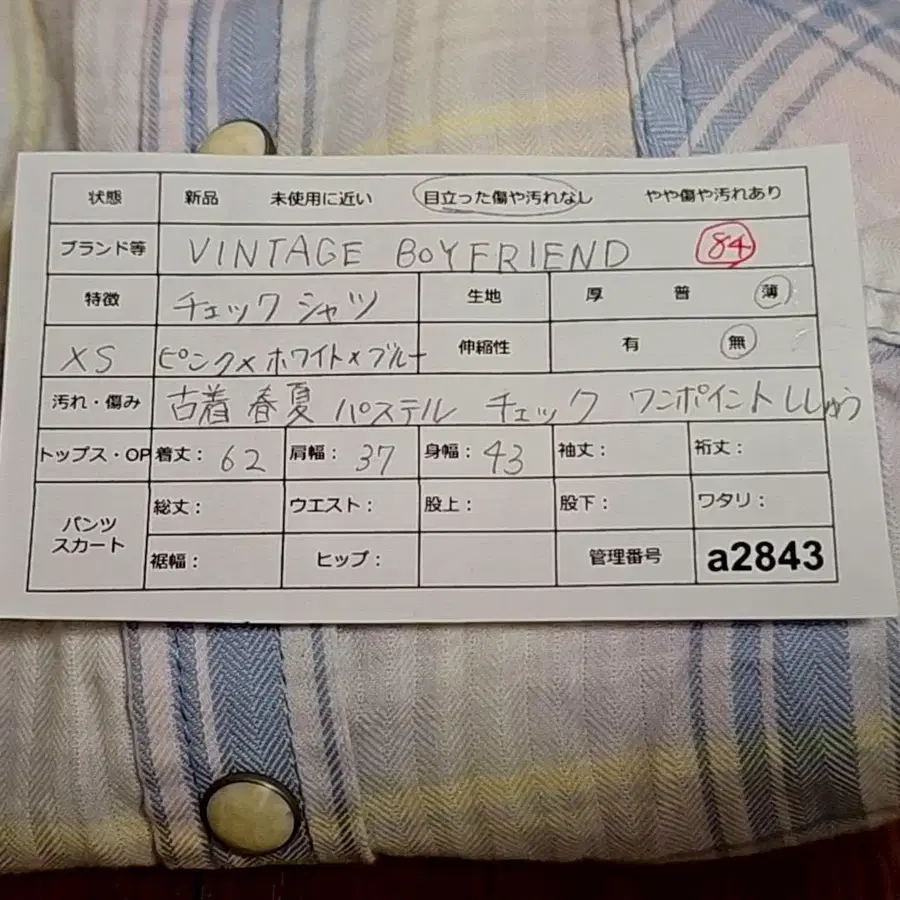 状態 新品 未使用に近い 目立った傷や汚れなし やや傷や汚れあり
ブランド等 VINTAGE BOYFRIEND 84
特徴 チェックシャツ 生地 厚 普 薄
XS ピンク×ホワイト×ブルー 伸縮性 有 無
汚れ・傷み 古着 春夏 パステル チェック ワンポイントししゅう
トップス・OP 着丈： 62 肩幅： 37 身幅： 43 袖丈： 裄丈：
パンツ スカート 総丈： ウエスト： 股上： 股下： ワタリ：
裾幅： ヒップ： 管理番号 a2843